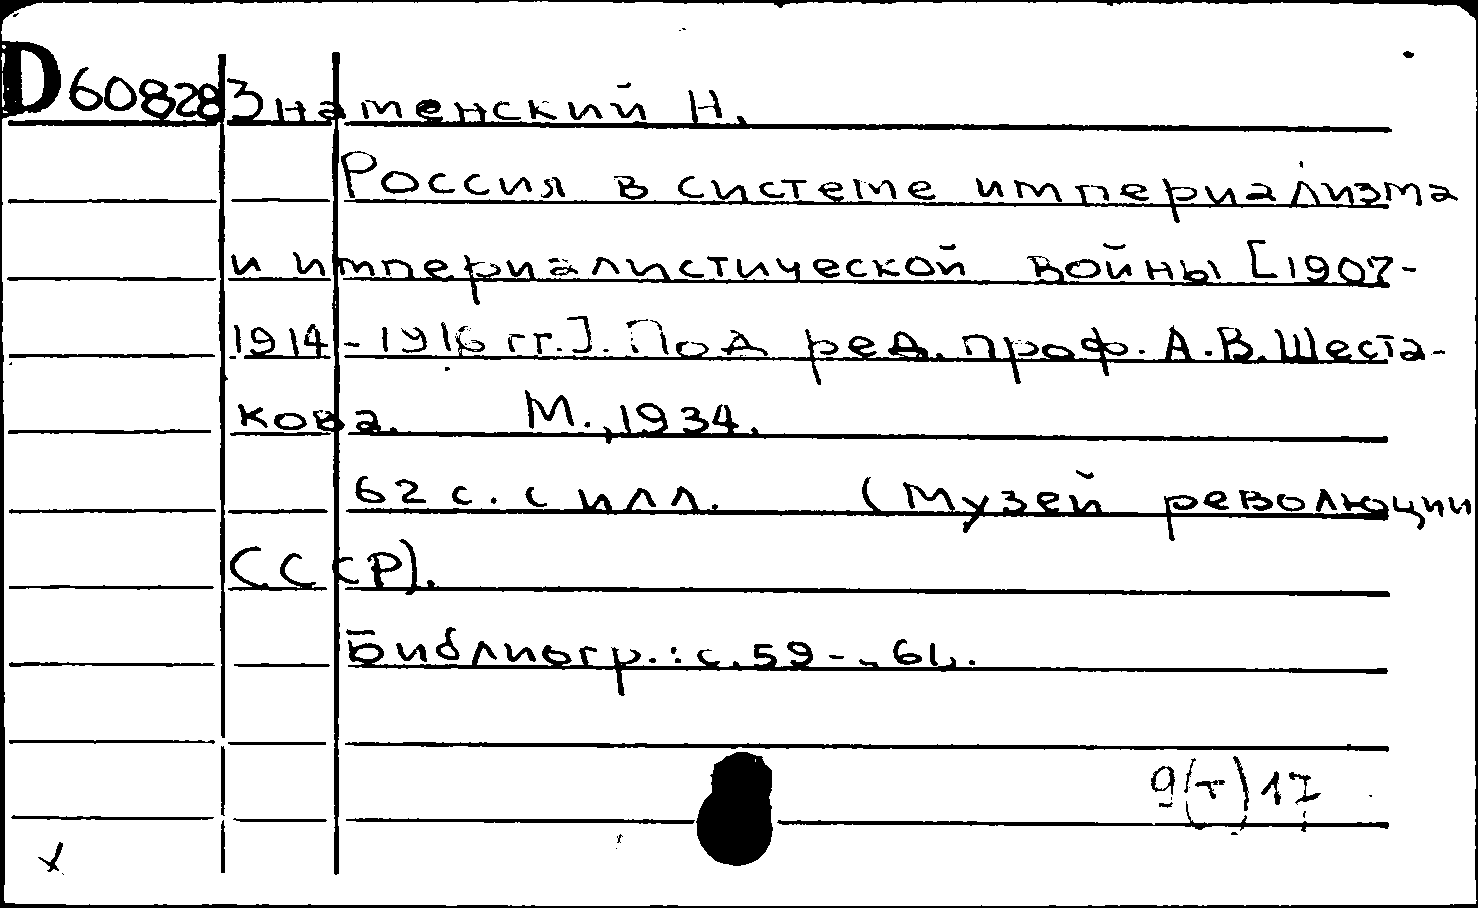 D608283наменский Н.
Россия в системе империализма
и империалистической войны [1907-
1914-1916 гг.]. Под ред. проф. А.В.Шеста-
кова. М., 1934.
62 с. с илл. (Музей революции
СССР).
Библиогр.: с. 59-61.
9(т)17